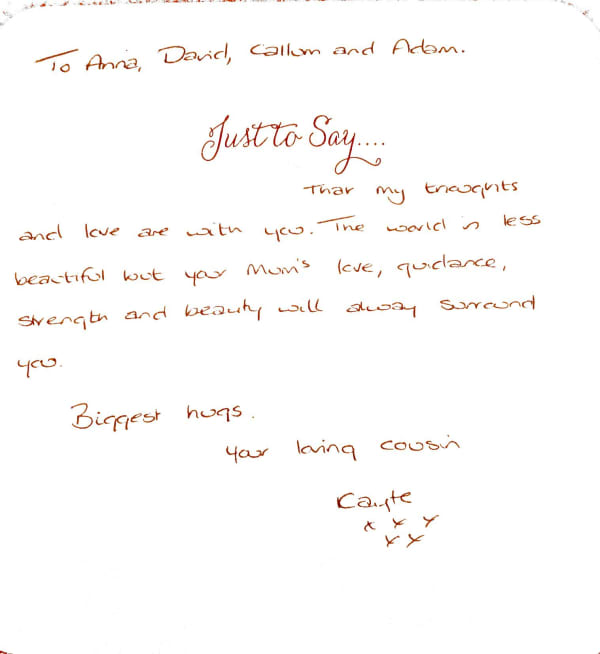 To Anna, David, Callum and Adam.
Just to Say....
That my thoughts
and love are with you. The world is less
beautiful but your Mum's love, guidance,
strength and beauty will alway surround
you.
Biggest hugs.
Your loving cousin
x x x
x x